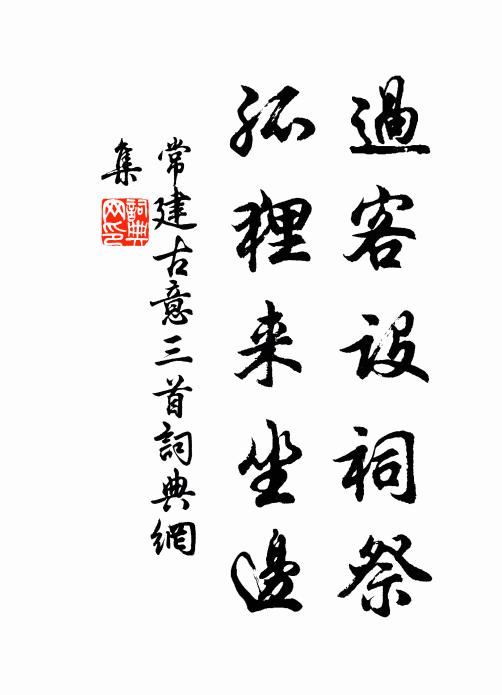 過客設祠祭
狐狸来坐邊
常建古意三首詞典網
集
詞典網印